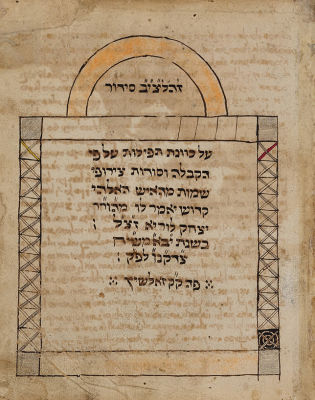 סידור
על כוונת תפילות על פי
הקבלה וסודות צירופי
שמות מהאיש האלהי
קדוש יאמר לו מהורר
יצחק לוריא זצל
בשנת יבא משיח
צדקנו לפק
פה קק זאלשיץ